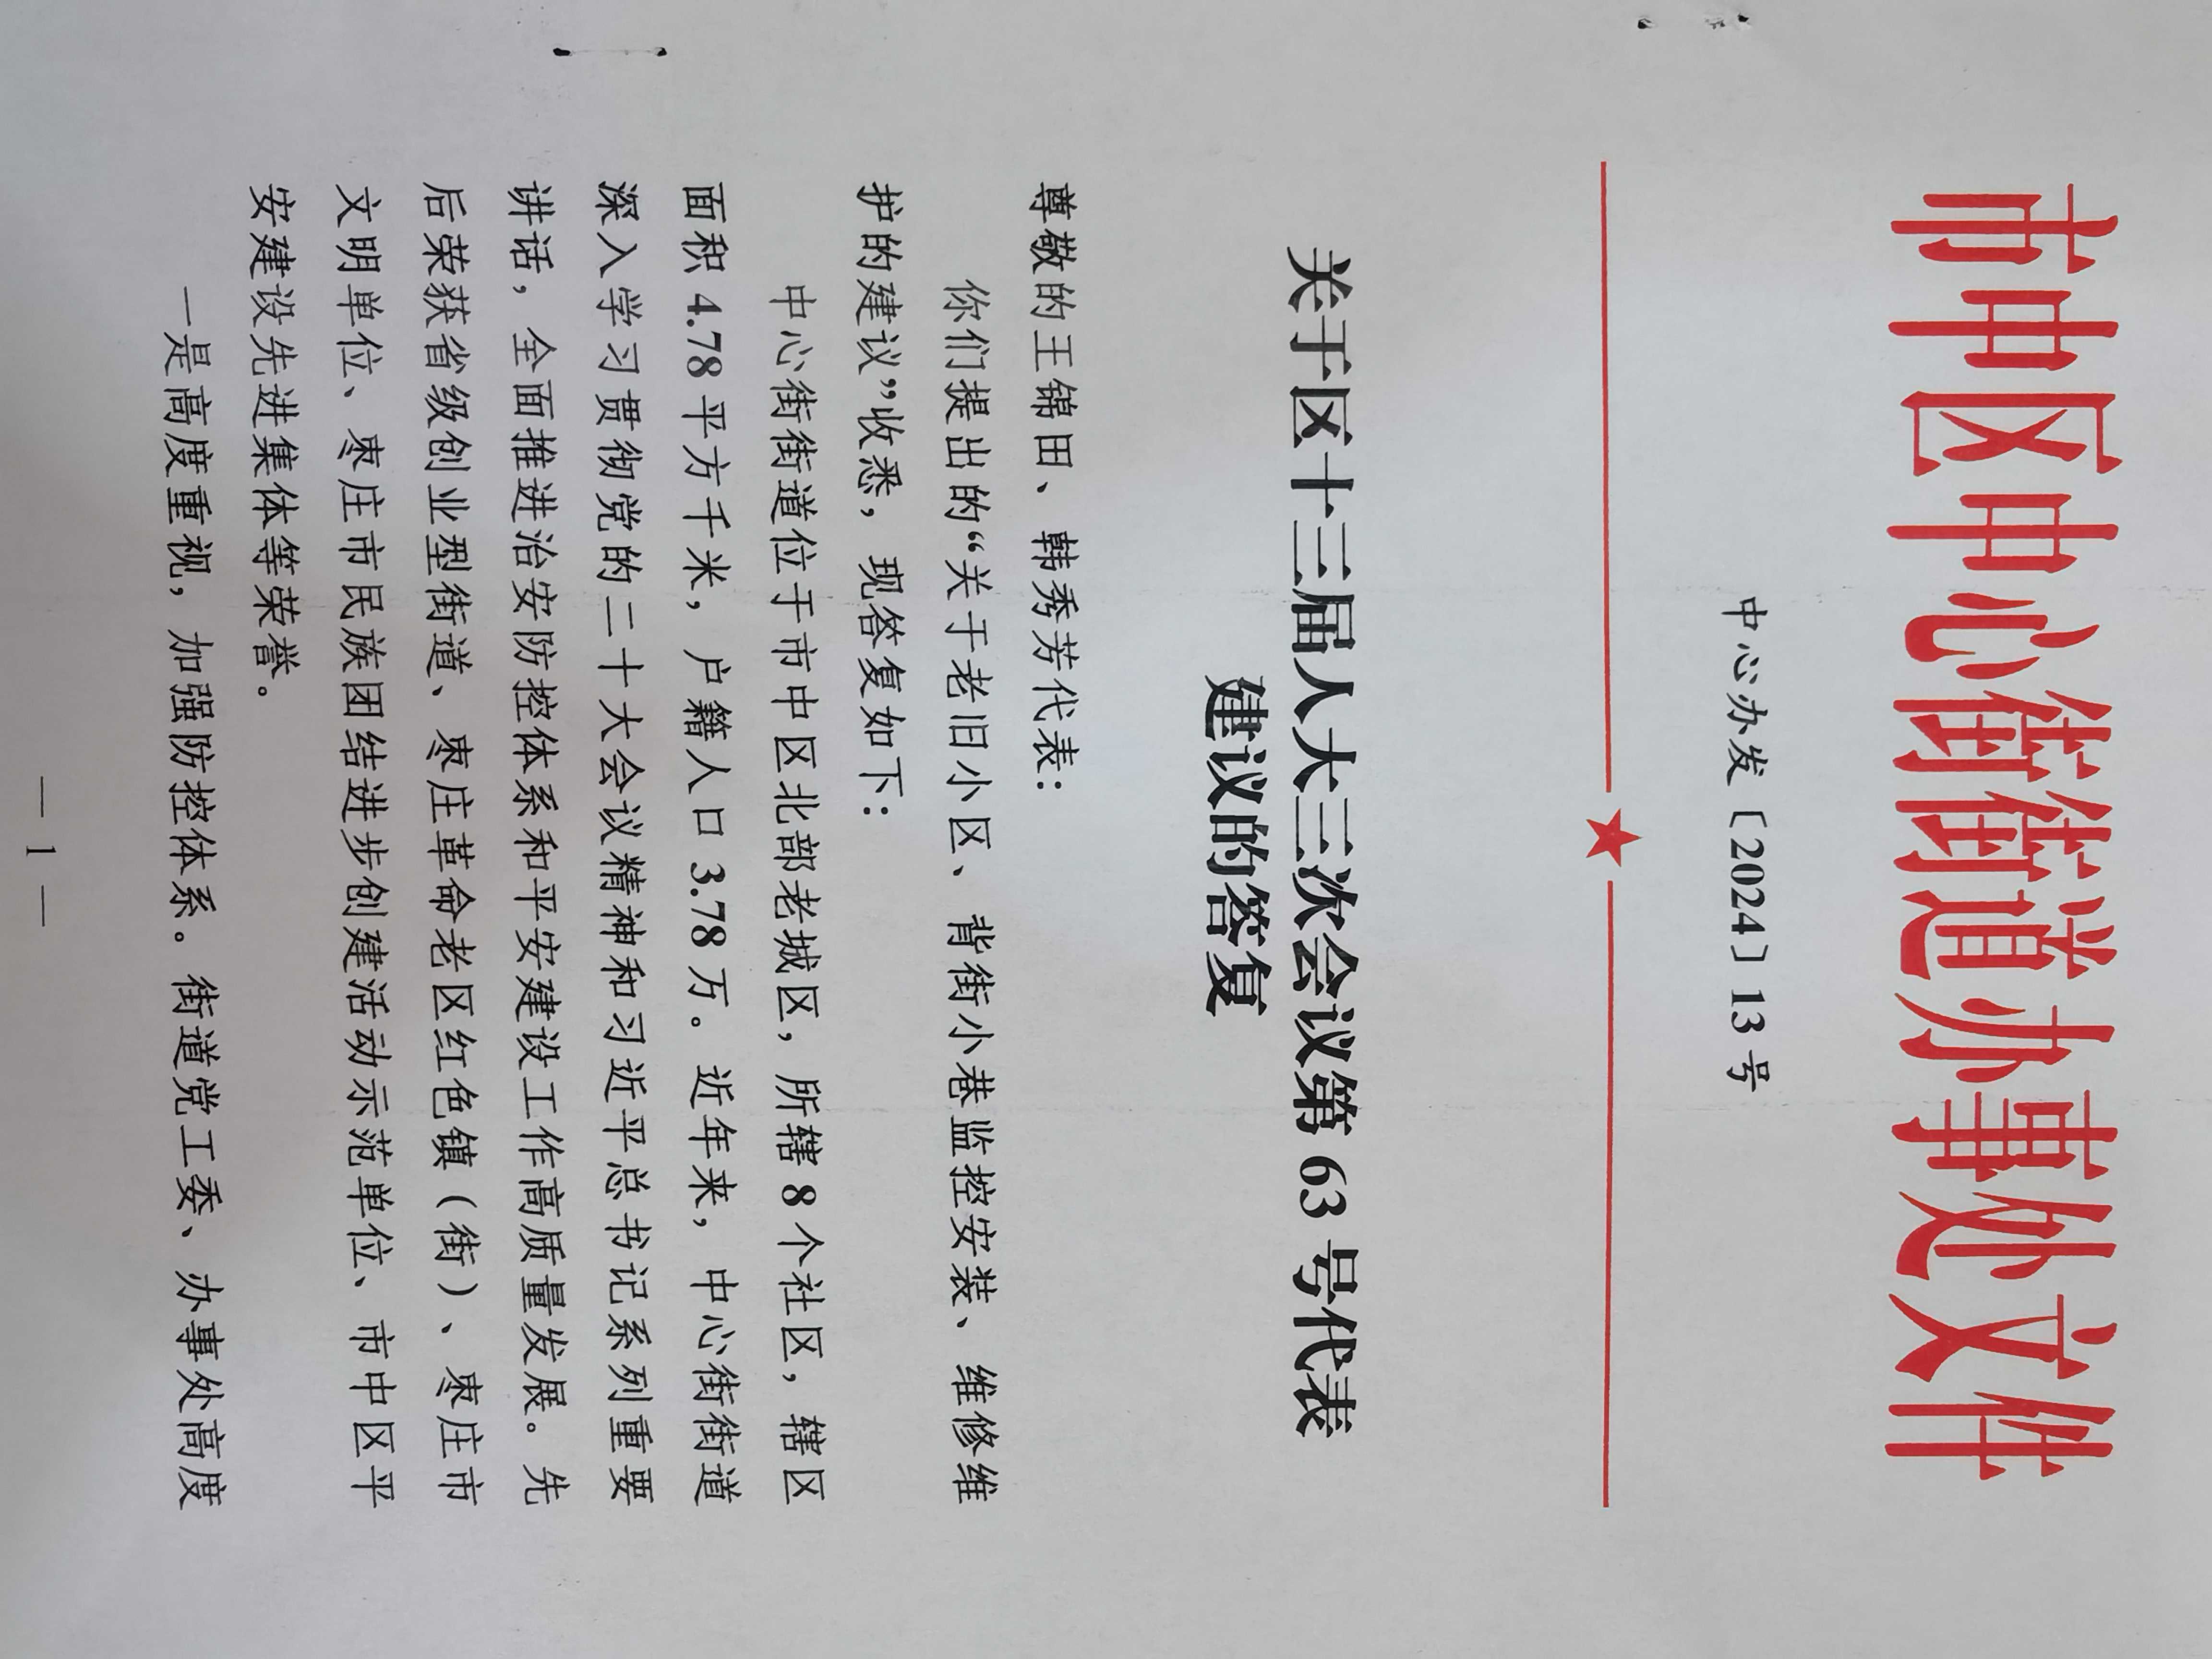 市中区中心街街道办事处文件
中心办发〔2024〕13号
关于区十三届人大三次会议第 63 号代表
建议的答复
尊敬的王锦田、韩秀芳代表：
你们提出的“关于老旧小区、背街小巷监控安装、维修维
护的建议”收悉，现答复如下：
中心街街道位于市中区北部老城区，所辖 8 个社区，辖区
面积 4.78 平方千米，户籍人口 3.78 万。近年来，中心街街道
深入学习贯彻党的二十大会议精神和习近平总书记系列重要
讲话，全面推进治安防控体系和平安建设工作高质量发展。先
后荣获省级创业型街道、枣庄革命老区红色镇（街）、枣庄市
文明单位、枣庄市民族团结进步创建活动示范单位、市中区平
安建设先进集体等荣誉。
一是高度重视，加强防控体系。街道党工委、办事处高度
— 1 —